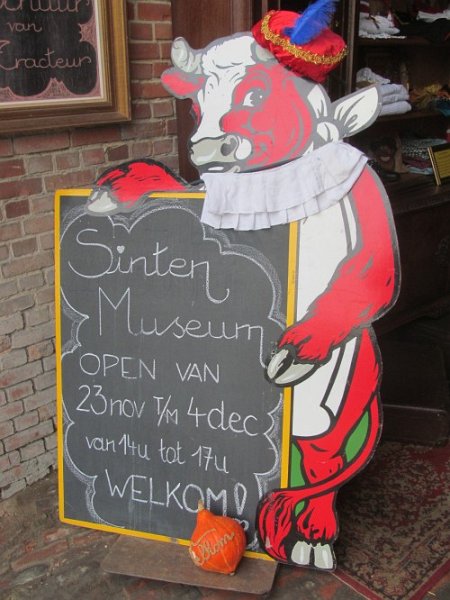 Schuur
van
Tracteur
Sinten
Museum
OPEN VAN
23 nov T/M 4 dec
van 14u tot 17u
WELKOM!